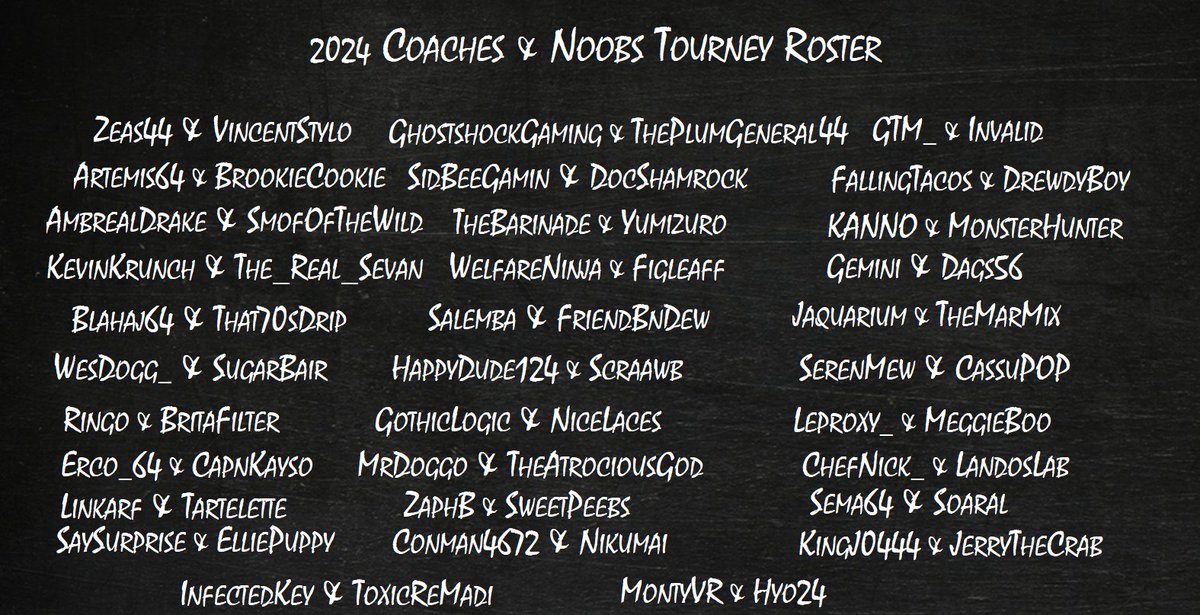 2024 Coaches & Noobs Tourney Roster
Zeas44 & VincentStylo GhostshockGaming & ThePlumGeneral44 GTM_ & Invalid
Artemis64 & BrookieCookie SidBeeGamin & DocShamrock FallingTacos & DrewdyBoy
AmbrealDrake & SmofOfTheWild TheBarinade & Yumizuro KANNO & MonsterHunter
KevinKrunch & The_Real_Sevan WelfareNinja & Figleaff Gemini & Dags56
Blahaj64 & That70sDrip Salemba & FriendBnDew Jaquarium & TheMarMix
WesDogg_ & SugarBair HappyDude124 & Scraawb SerenMew & CassuPOP
Ringo & BritaFilter GothicLogic & NiceLaces Leproxy_ & MeggieBoo
Erco_64 & CapnKayso MrDoggo & TheAtrociousGod ChefNick_ & LandosLab
Linkarf & Tartelette ZaphB & SweetPeebs Sema64 & Soaral
SaySurprise & ElliePuppy Conman4672 & Nikumai KingJ0444 & JerryTheCrab
InfectedKey & ToxicReMadi MontyVR & Hyo24